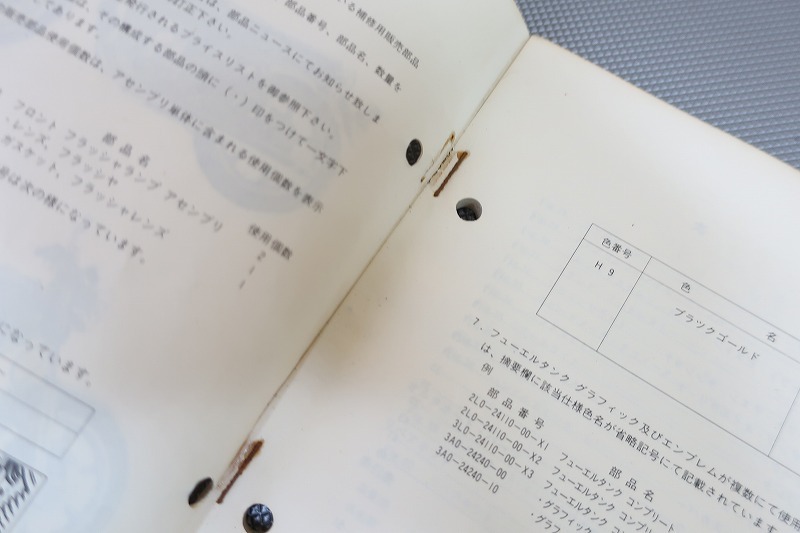 いる補修用販売部品
部品番号、部品名、数量を
は、部品ニュースにてお知らせ致しま
訂正下さい。
発行されるプライスリストを御参照下さい。
ては、その構成する部品の頭に(・)印をつけて一文字下
販売部品使用個数は、アセンブリ単体に含まれる使用個数を表示
部品名
使用個数
フロント フラッシャランプ アセンブリ
2
・レンズ、フラッシャ
1
ガスケット、フラッシャレンズ
1
号は次の様になっています。
になっています。
色番号
色 名
H 9
ブラックゴールド
7. フューエルタンク グラフィック及びエンブレムが複数にて使用
は、摘要欄に該当仕様色名が省略記号にて記載されています。
例
部品番号
部品名
2L0-24110-00-X1 フューエルタンク コンプリート
2L0-24110-00-X2 フューエルタンク コンプリ
3L0-24110-00-X3 フューエルタンク コンプ
3A0-24240-00 ・グラフィック
3A0-24240-10 ・グラフ